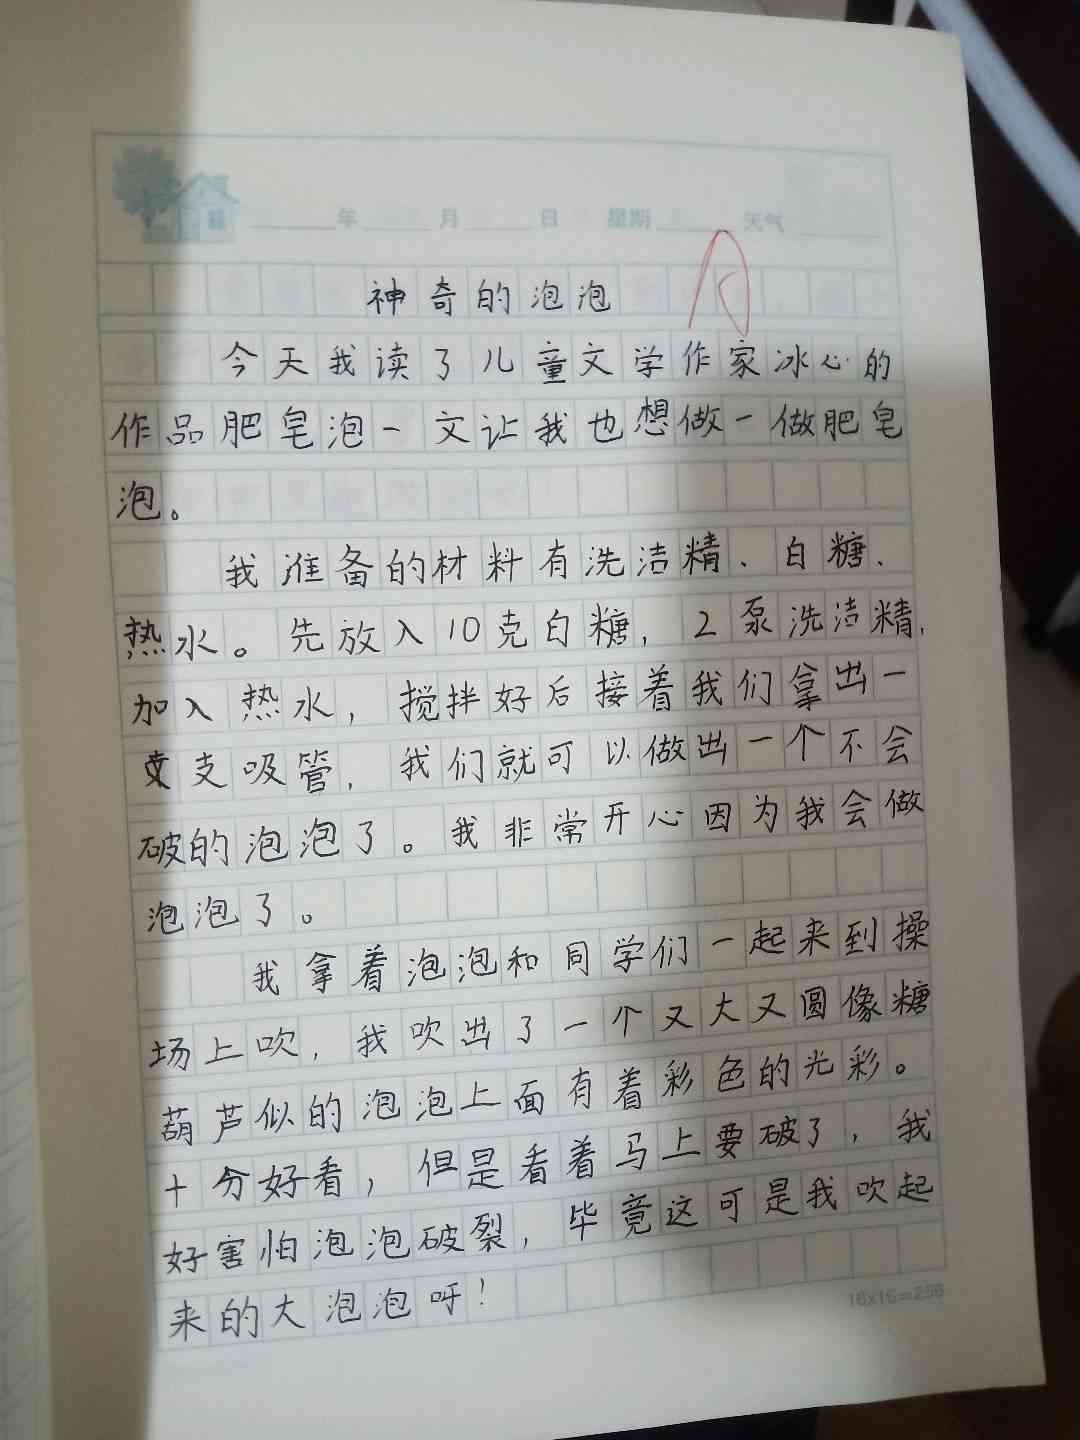 年 月 日 星期 天气
神奇的泡泡
今天我读了儿童文学作家冰心的
作品肥皂泡一文让我也想做一做肥皂
泡。
我准备的材料有洗洁精、白糖、
热水。先放入10克白糖，2泵洗洁精，
加入热水，搅拌好后接着我们拿出一
支吸管，我们就可以做出一个不会
破的泡泡了。我非常开心因为我会做
泡泡了。
我拿着泡泡和同学们一起来到操
场上吹，我吹出了一个又大又圆像糖
葫芦似的泡泡上面有着彩色的光彩。
十分好看，但是看着马上要破了，我
好害怕泡泡破裂，毕竟这可是我吹起
来的大泡泡呀！
16x16=256